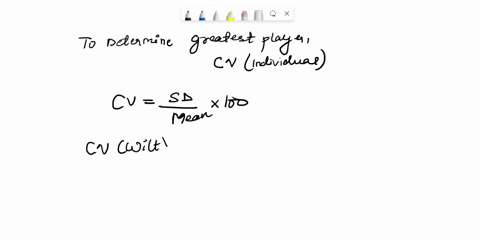 To Determine greatest player,
CV (individual)
CV = SD / Mean × 100
CV (Wilt)